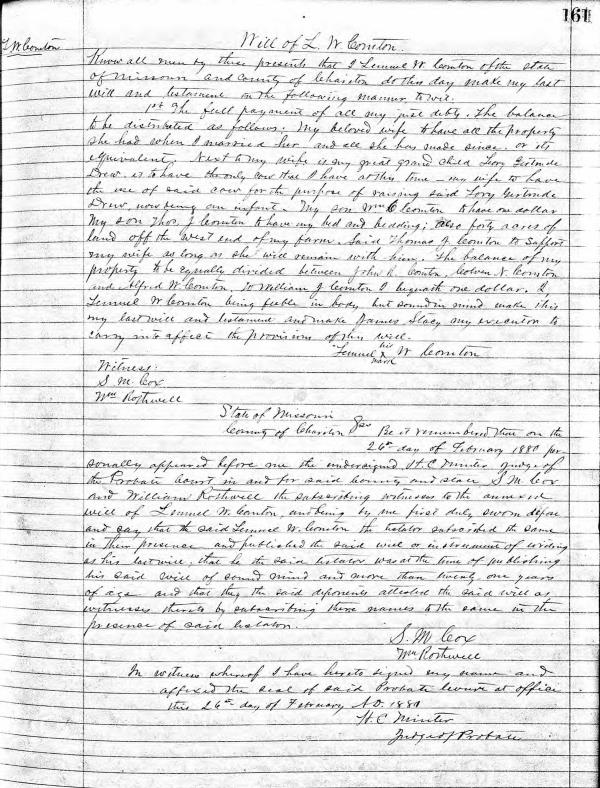 161
L W Cornton
Will of L. W. Cornton.
Know all men by these presents that I Lemuel W Cornton of the State
of Missouri and County of Chariton do this day make my last
will and testament in the following manner to wit.
1st The full payment of all my just debts. The balance
to be distributed as follows: My beloved wife to have all the property
she had when I married her and all she has made since, or its
equivalent. Next to my wife is my great grand child Lory Gertrude
Drew. is to have the only cow that I have at this time - my wife to have
the use of said cow for the purpose of raising said Lory Gertrude
Drew, now being an infant. My son Wm C Cornton to have one dollar
My son Thos. J Cornton to have my bed and bedding; also forty acres of
land off the West end of my farm. Said Thomas J. Cornton to support
my wife as long as she will remain with him. The balance of my
property to be equally divided between John R. Cornton, N. Cornton
and Alfred W. Cornton. To William J Cornton I beqeath one dollar. I
Lemuel W Cornton being feeble in body, but sound in mind make this
my last will and testament and make James Stacy my executor to
carry into affect the provisions of this will.
Lemuel his X mark W Cornton
Witness:
S. M. Cox
Wm Rothwell
State of Missouri
County of Chariton } Be it remembered that on the
26th day of February 1880 per
sonally appeared before me the undersigned H. C Minter judge of
the Probate Court in and for said County and state S. M Cox
and William Rothwell the subscribing witnesses to the annexed
will of Lemuel W. Cornton, and being by me first duly sworn depose
and say that the said Lemuel W. Cornton the testator subscribed the same
in their presence and published the said will or instrument of writing
as his last will; that he the said testator was at the time of publishing
his said will of sound mind and more than twenty one years
of age and that they the said deponents attested the said will as
witnesses thereto by subscribing there names to the same in the
presence of said testator.
S. M Cox
Wm Rothwell
In witness whereof I have hereto signed my name and
affixed the seal of said Probate Court at office
this 26th day of February A.D. 1880
H. C Minter
Judge of Probate